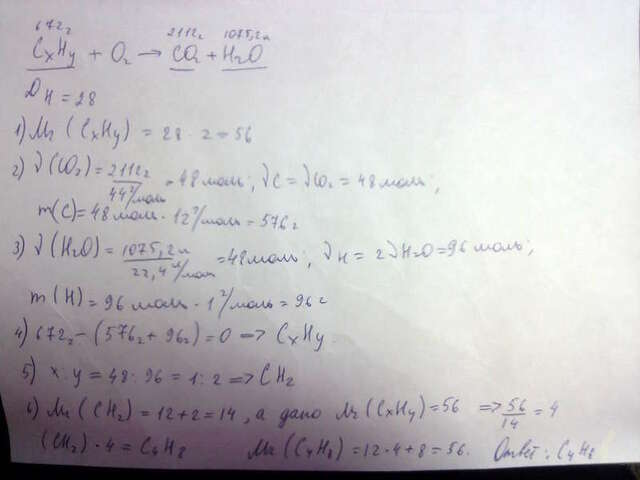 672г 2112г 1075,2л
CxHy + O₂ → CO₂ + H₂O
D H = 28
1) Mr (CxHy) = 28 · 2 = 56
2) ν(CO₂) = 2112г / 44 г/моль = 48 моль; νC = νCO₂ = 48 моль;
m(C) = 48 моль · 12 г/моль = 576 г
3) ν(H₂O) = 1075,2л / 22,4 л/моль = 48 моль; νH = 2νH₂O = 96 моль;
m(H) = 96 моль · 1 г/моль = 96 г
4) 672г - (576г + 96г) = 0 => CxHy.
5) x : y = 48 : 96 = 1 : 2 => CH₂
6) Mr (CH₂) = 12 + 2 = 14, а дано Mr (CxHy) = 56 => 56/14 = 4
(CH₂) · 4 = C₄H₈ Mr (C₄H₈) = 12 · 4 + 8 = 56. Ответ: C₄H₈